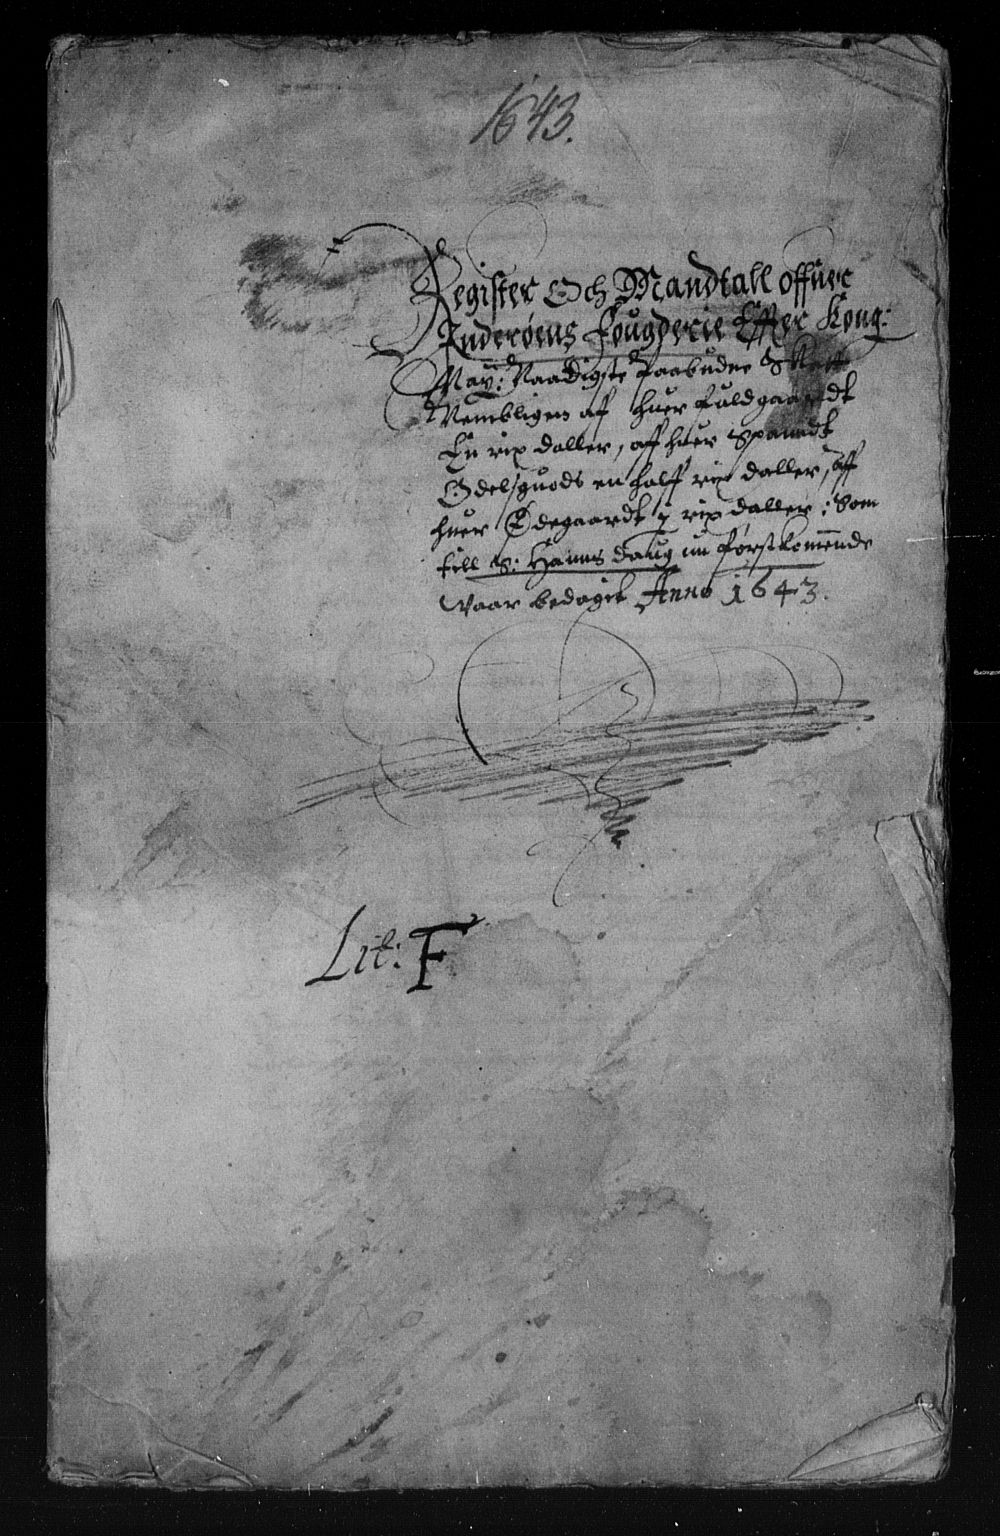 1643.
Register Och Mandtall offuer
Inderøens Fougderie Effter Kong:
May: Naadigste Paabudne Skatt
Nembligen af huer fuldgaardt
En rix daller, aff huer Spanndt
Odelsguods en halff rix daller, Aff
huer Ødegaardt ½ rix daller; Som
till S: Hanns daug nu først komende
Waar bedagit Anno 1643.
Lit: F